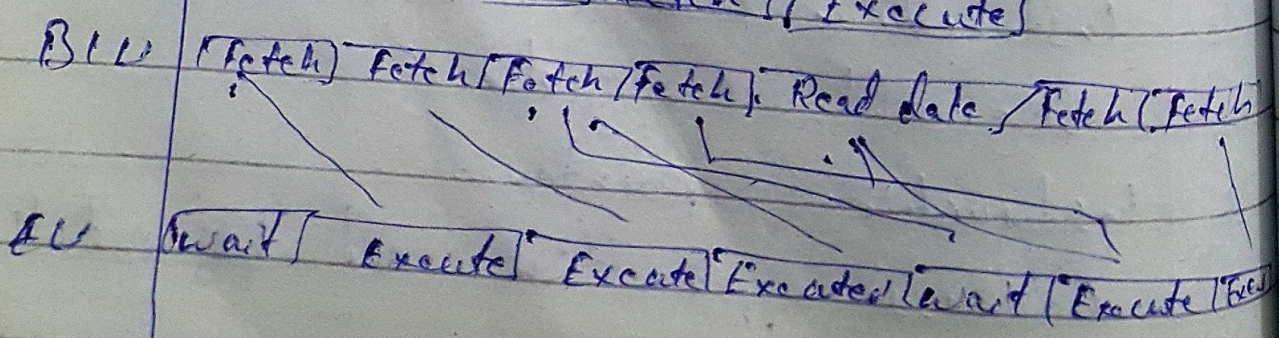 Execute
BIU Fetch Fetch Fetch Fetch Read data Fetch Fetch
EU wait Execute Execute Executed wait Execute Exe